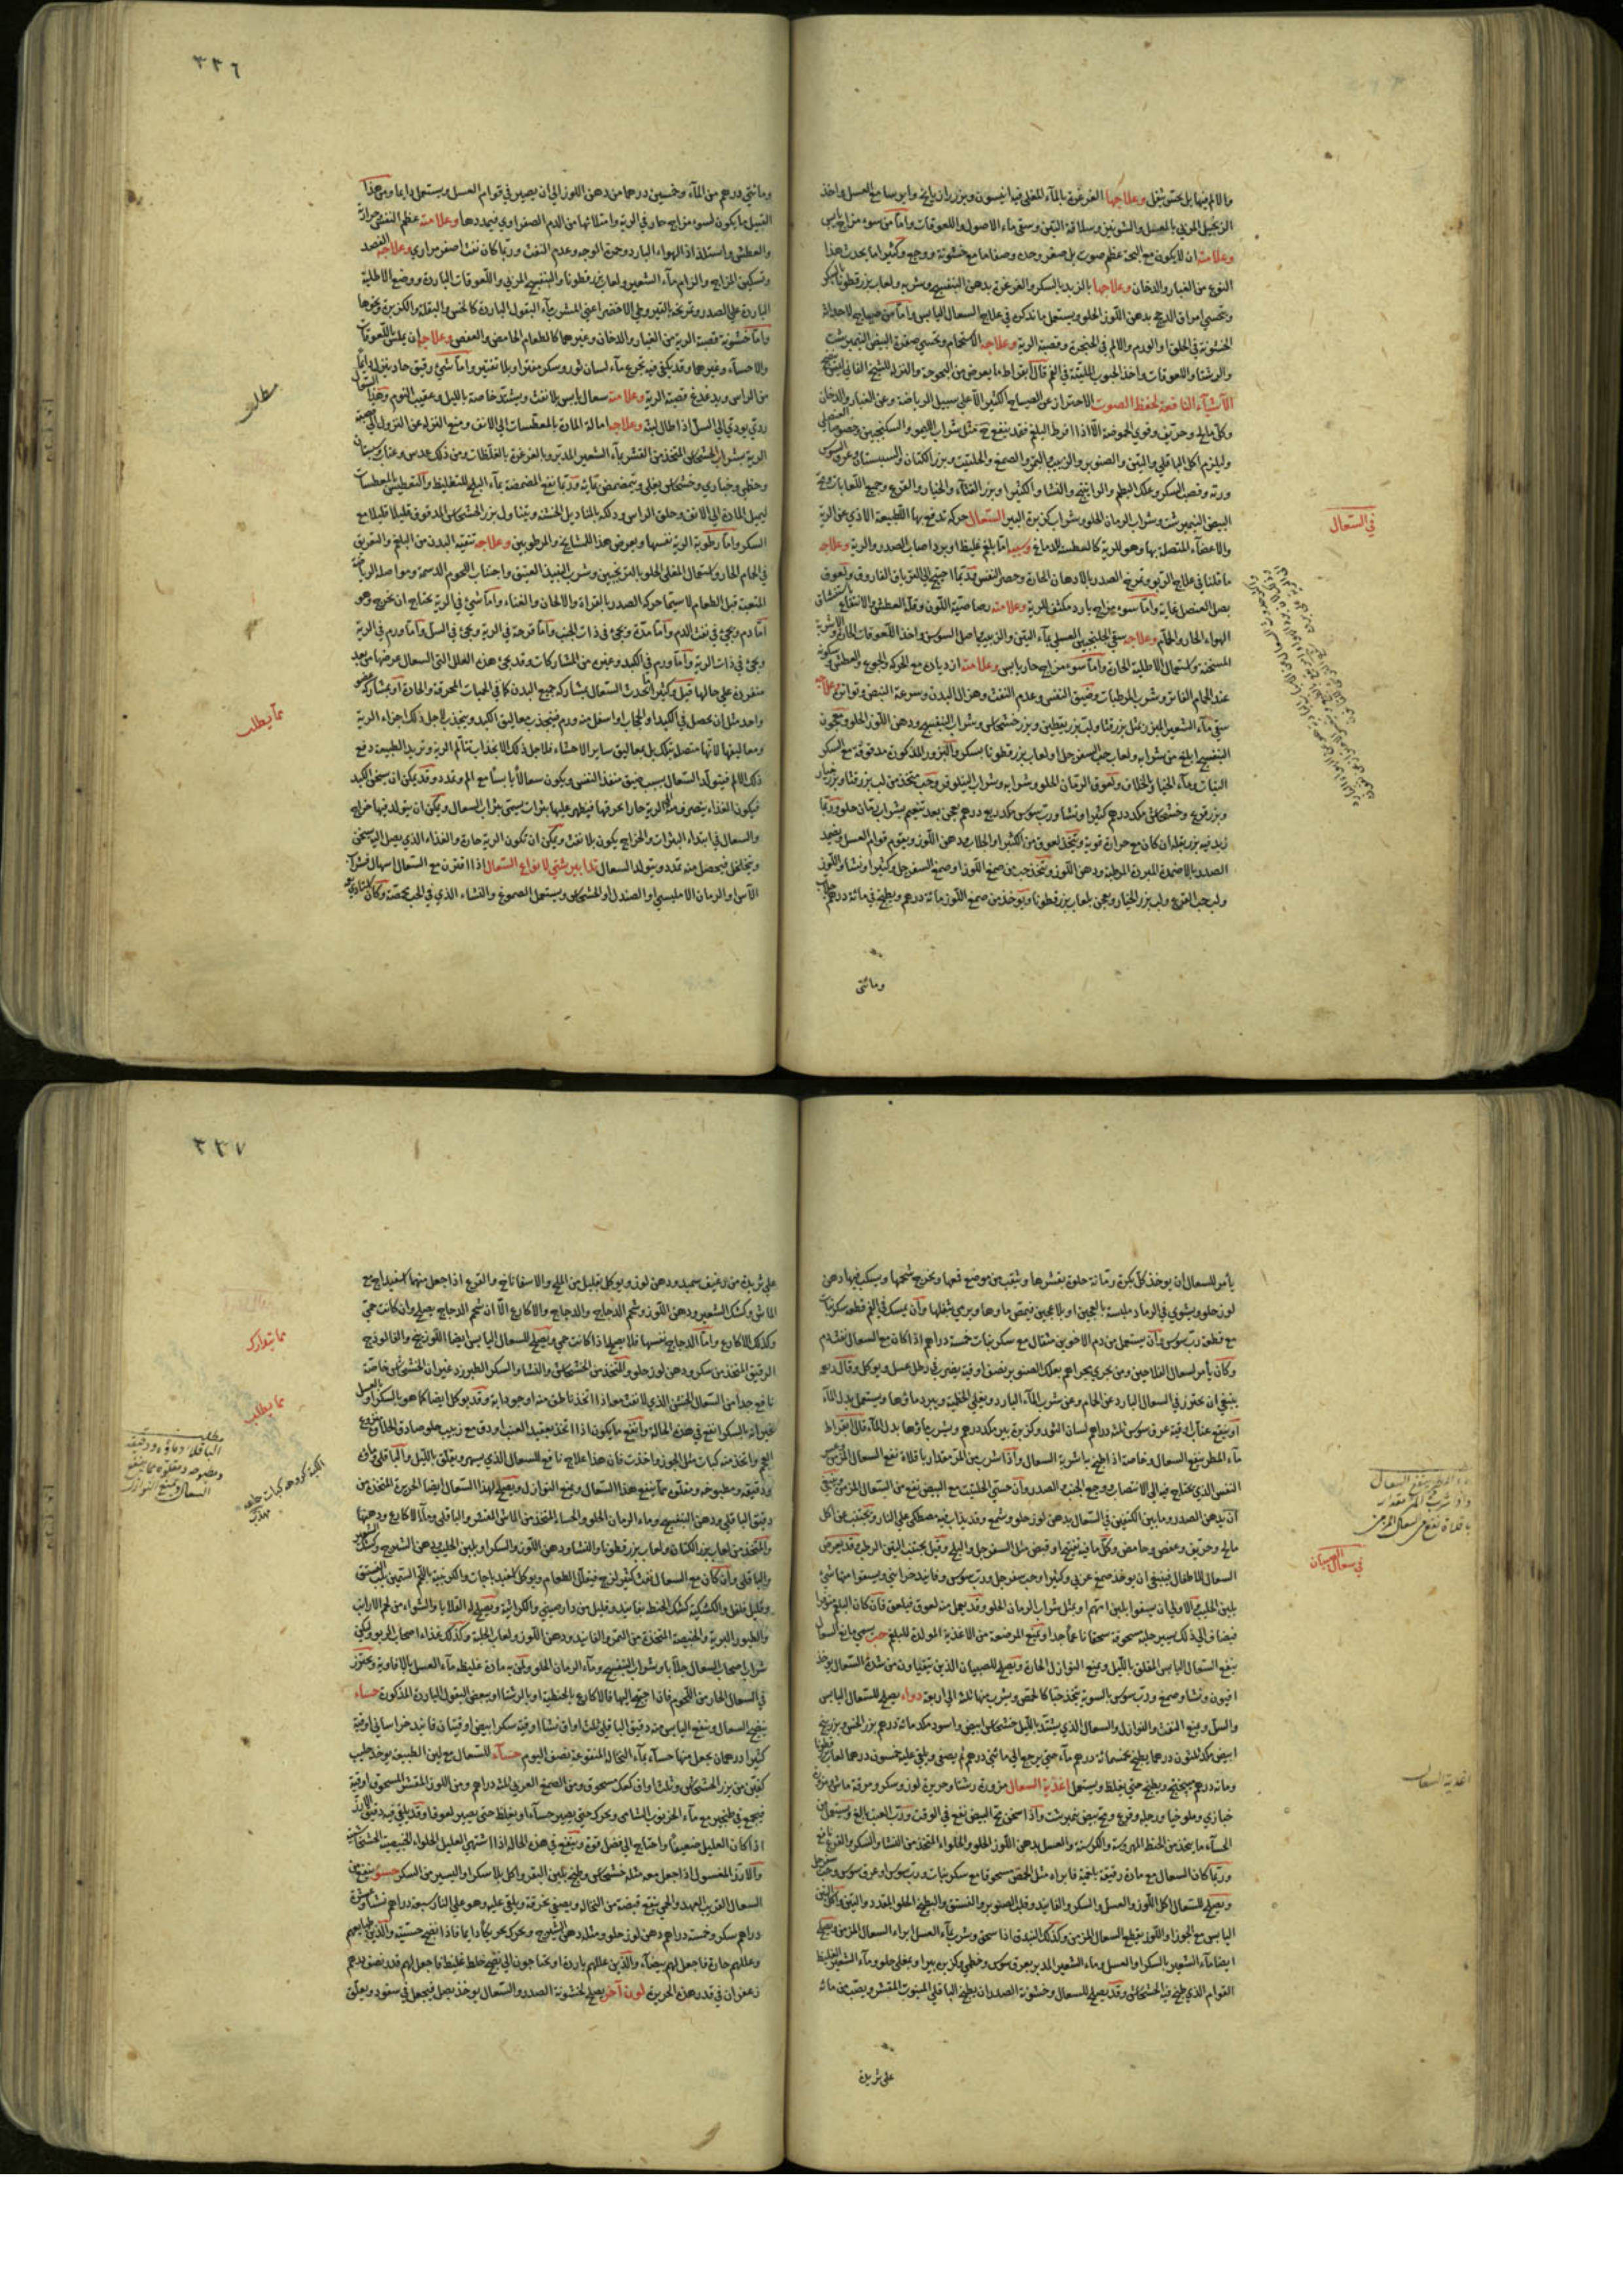 والالم فيها بل يحس بثقل وعلاجها الغرغرة بالماء المغلى فيه انيسون وبزر رازيانج وايرسا مع العسل واخذ
الزنجبيل المربى بالعسل والشونيز وسلاقة التين وسقى ماء الاصول واللعوقات واما من سوء مزاج يابس
وعلامته ان لا يكون مع البحة عظم صوت بل صغر وحدة وصفاء مع خشونة ووجع وكثيرا ما يحدث هذا
النوع من الغبار والدخان وعلاجها بالزبد بالسكر والغرغرة بدهن البنفسج وشربه ولعاب بزر قطونا بسكر
وتحسى امراق الدجج بدهن اللوز الحلو ويستعمل ما نذكره في علاج السعال اليابس واما من صياح لاحداث
الخشونة في الحلق او الورم والالم في الحنجرة وقصبة الرية وعلاجه الاستحمام وتحسى صفرة البيض النيمبرشت
والرشتا واللعوقات واخذ الحبوب الملينة في الفم قال ابقراط ما يعرض من البحوحة والنزلة للشيخ الفاني ليس ينضج
الاشياء النافعة لحفظ الصوت الاحتراز عن الصياح الكثير الا على سبيل الرياضة وعن الغبار والدخان
وكل مالح وحريف وقوي الحموضة الا اذا افرط البلغم فقد ينفع ح مثل شراب الليمو والسكنجبين وخصوصا العنصلي
وليلزم اكل الباقلي والتين والصنوبر والزبيب والتمر والصمغ والحلتيت وبزر الكتان والسبستان وعرق السوس
وربه وقصب السكر وعلك البطم والراتينج والنشا والكثيرا وبزر القثاء والخيار والقرع وجميع اللعابات وصفرة
البيض النيمبرشت وشراب الرمان الحلو وشراب كزبرة البير السعال حركة تدفع بها الطبيعة الاذى عن الرية
والاعضاء المتصلة بها وهو للرية كالعطسة للدماغ وسببه اما بلغم غليظ او برد اصاب الصدر والرية وعلاجه
ما قلنا في علاج الربو وتمريخ الصدر بالادهان الحارة وحصر النفس وربما احتيج الى الترياق الفاروق ولعوق
بصل العنصل غاية واما سوء مزاج بارد مكثف للرية وعلامته رصاصية اللون وقلة العطش والانتفاع باستنشاق
الهواء الحار والحمام وعلاجه سقى الجلنجبين العسلي بماء التين والزبيب واصل السوس واخذ اللعوقات الحارة والاشربة
المسخنة واستعمال الاطلية الحارة واما سوء مزاج حار يابس وعلامته ازدياده مع الحركة والجوع والعطش وسكونه
عند الحمام الفاتر وشرب المرطبات وضيق النفس وعدم النفث وهزال البدن وسرعة النبض وتواتره علاجه
سقى ماء الشعير المبزر بمثل بزر قثا ولب بزر يقطين وبزر خشخاش وشراب البنفسج ودهن اللوز الحلو ومعجون
البنفسج ابلغ من شرابه ولعاب حب السفرجل ولعاب بزر قطونا بسكر والبزور المذكورة مدقوقة مع السكر
النبات وماء الخيار والخلاف ولعوق الرمان الحلو وشرابه وشراب النيلوفر وحب متخذ من لب بزر قثا وبزر خيار
وبزر قرع وخشخاش مكد درهم كثيرا ونشا ورب سوس مكد ربع درهم يعجن بعد تنعيم بشراب رمان حلو وربما
زيد فيه بزر بقلة ان كان مع حرارة قوية ويتخذ لعوق من الكثيرا والجلاب ودهن اللوز ويقوم قوام العسل ويضمد
الصدر بالاضمدة المبردة المرطبة ودهن اللوز ويتخذ حب من صمغ اللوز او صمغ السفرجل وكثيرا ونشا واللوز
ولب حب القرع ولب بزر الخيار ويعجن بلعاب بزر قطونا ويوخذ من صمغ اللوز مائة درهم ويطبخ في مائة درهم جلاب
في السعال
ومائتى
٣٣٦
ومائتى درهم من الماء وخمسين درهما من دهن اللوز الى ان يصير في قوام العسل ويستعمل دايما ومن هذا
القبيل ما يكون لسوء مزاج حار في الرية وامتلائها من الدم الصفراوي فيمددها وعلامته عظم النفس وحرارته
والعطش واستلذاذ الهواء البارد وحمرة الوجه وعدم النفث وربما كان نفث اصفر مراري وعلاجه الفصد
وتسكين المزاج والزام ماء الشعير ولعاب بزر قطونا والبنفسج المربى واللعوقات الباردة ووضع الاطلية
الباردة على الصدر وتمريخه بالقيروطي الاخضر اعنى المشرب ماء البقول الباردة كالخس والبقلة والكزبرة ونحوها
واما خشونة قصبة الرية من الغبار والدخان وغيرهما كالطعام الحامض والعفص وعلاجه ان يملس باللعوقات
والاحساء وغيرهما وقد يكفى فيه تجرع ماء لسان ثور وسكر مفترا وبلا تفتير واما شيء رقيق حاد ينزل دايما
من الراس ويدغدغ قصبة الرية وعلامته سعال يابس بلا نفث ويشتد خاصة بالليل وعقيب النوم وهذا السعال
ردي يودي الى السل اذا طال لبثه وعلاجه امالة المادة بالمعطسات الى الانف ومنع النزلة عن النزول الى قصبة
الرية بشراب الخشخاش المتخذ من القشر بماء الشعير المدبر وبالغرغرة بالمغلظات ومن ذلك عدس وعناب وسبستان
وخطمى وخبازي وخشخاش يغلى ويتمضمض بمائه وربما نفع المضمضة بماء الثلج للتغليظ والتعطيش بالمعطسات
ليميل المادة الى الانف وحلق الراس ودلكه بالمناديل الخشنة ويتناول بزر الخشخاش المدقوق قليلا قليلا مع
السكر واما رطوبة الرية نفسها ويعرض هذا للمشايخ والمرطوبين وعلاجه تنقية البدن من البلغم والتعريق
في الحمام الحار واستعمال المغلى الحلو بالترنجبين وشرب النبيذ العتيق واجتناب اللحوم الدسمة ومواصلة الرياضة
المتعبة قبل الطعام لا سيما حركة الصدر بالقراة والالحان والغناء واما شيء في الرية يحتاج ان يخرج وهو
اما دم ويجيء في نفث الدم واما مدة ويجيء في ذات الجنب واما قرحة في الرية ويجيء في السل واما ورم في الرية
ويجيء في ذات الرية واما ورم في الكبد وغيره من المشاركات وقد يجيء هذه العلل التى السعال عرضها من بعد
منفردة على حالها قيل وكثيرا يحدث السعال بمشاركة جميع البدن كما في الحميات المحرقة والحادة او بمشاركة عضو
واحد مثل ان يحصل في الكبد او الحجاب او اسفل منه ورم فينجذب معاليق الكبد وينجذب لاجل ذلك اجزاء الرية
ومعاليقها لانها متصلة بتلك بل بمعاليق ساير الاحشاء فلاجل ذلك الانجذاب تتالم الرية وتريد الطبيعة دفع
ذلك الالم فيتولد السعال بسبب ضيق منفذ النفس ويكون سعالا يابسا مع الم وتمدد وقد يمكن ان يسخن الكبد
فيكون الغذاء ينصرف الى الرية حارا يحرقها فيظهر عليها بثرات يسمى بثرات السعال ويمكن ان يتولد فيها خراج
والسعال في ابتداء البثرات والخراج يكون بلا نفث ويمكن ان تكون الرية حارة والغذاء الذي يصل اليها يسخن
ويتخلخل فيحصل منه تمدد ويتولد السعال تدابير شتى لانواع السعال اذا اقترن مع السعال اسهال فشراب
الآس او الرمان الامليسي او الصندل او الخشخاش ويستعمل الصموغ والنشاء الذي في الحب محمصة وكان
مطلب
مما يطلب
يأمر للسعال ان يوخذ كل بكرة رمانة حلوة بقشرها ويثقب من موضع قمعها ويخرج شحمها ويسكب فيها دهن
لوز حلو ويشوى في الرماد ملبسة بالعجين او بلا عجين فيمص ماوها ويرمى ثفلها وان يمسك في الفم قطعة سكر نبات
مع قطعة رب سوس وان يستعمل من دم الاخوين مثقال مع سكر نبات خمسة دراهم اذا كان مع السعال نفث دم
وكان يأمر لسعال الفلاحين ومن يجري مجراهم بعلك الصنوبر نصف اوقية يضرب في رطل عسل ويوكل وقال
ينبغى ان يحترز في السعال البارد عن الحمام وعن شرب الماء البارد ويغلى الخطمية ويبرد ماؤها ويستعمل بدل الماء
او ينقع عناب اوقية عرق سوس ثلثة دراهم لسان الثور وكزبرة بير مكد درهم ويشرب ماؤها بدل الماء قال ابقراط
ماء المطر ينفع السعال وخاصة اذا طبخ به اشربة السعال واذا شرب من المر مقدار باقلاة نفع السعال المزمن وعسر
النفس الذي يحتاج فيه الى الانتصاب ووجع الجنب والصدر وان حسى الحلتيت مع البيض نفع من السعال المزمن وينبغى
ان يدهن الصدر وما بين الكتفين في السعال بدهن لوز حلو وشمع وقد يذاب فيه مصطكى على النار ويجتنب عن اكل
مالح وحريف وعفص وحامض وكل ما فيه تفتيح او قبض مثل السفرجل والبلح وقيل يجتنب التين الرطب وقد يعرض
السعال للاطفال فينبغى ان يوخذ صمغ عربي وكثيرا وحب سفرجل ورب سوس وفانيد خزائني ويسقوا منها شيء
بلبن الحليب والاولى ان يسقوا بلبن امهم او بمثل شراب الرمان الحلو وقد يعمل منه لعوق فيلعق فان كان البلغم
فيضاف الى ذلك يسير حلبة مسحوقة سحقا ناعما جدا وتمنع المرضعة من الاغذية المولدة للبلغم حب يسمى مانع السعال
ينفع السعال اليابس المقلق بالليل ويمنع النوازل الحارة ويصلح للصبيان الذين يتقيئون من شدة السعال يوخذ
افيون ونشا وصمغ ورب سوس بالسوية يتخذ حبا كالحمص ويشرب منها ثلثة الى اربعة دواء يصلح للسعال اليابس
والسل ويمنع النفث والنوازل والسعال الذي يشتد بالليل خشخاش ابيض واسود مكد مائة درهم بزر الخس وبزر بنج
ابيض مكد ثلثون درهما يطبخ بخمسمائة درهم ماء حتى يرجع الى مائتى درهم ثم يصفى ويلقى عليه خمسون درهما لعاب قطونا
ومائة درهم ميبختج ويطبخ حتى يغلظ ويستعمل اغذية السعال مزورة رشتا وحريرة لوز وسكر ومرقة ماش مزورة
خبازي وملوخيا ورجلة وقرع ومح بيض نيمبرشت واذا سخن مح البيض نفع في الوقت ورب العنب بالغ ويستعمل من
الحساء ما يتخذ من الحنطة المهروسة والكرسنة والعسل بدهن اللوز الحلو والحلواء المتخذ من النشا والسكر والقرع نافع
وربما كان السعال مع مادة رقيقة بلغمية فابراه مثل الحمص مسحوقا مع سكر نبات ورب سوس او عرق سوس وحب سفرجل
ويصلح للسعال اكل اللوز والعسل والسكر والفانيد وقلب الصنوبر والفستق والبطيخ الحلو المقدد والتين واكل التين
اليابس مع الجوز او اللوز يقطع السعال المزمن وكذلك البندق اذا سحق وشرب بماء العسل ابراء السعال المزمن ويصلح
ايضا ماء الشعير بالسكر او العسل وماء الشعير المدبر بعرق سوس وخطمي وكزبرة بير او بمغلى حلو وماء الشعير الغليظ
القوام الذي طبخ فيه الخشخاش وقد يصلح للسعال وخشونة الصدر ان يطبخ الباقلي المنبوت المقشر ويصب من مائه
ماء المطر ينفع السعال
واذا شرب من المر مقدار
باقلاة نفع من السعال المزمن
في سعال الصبيان
اغذية السعال
على ثريدة
٣٣٧
على ثريدة من رغيف سميد ودهن لوز ويوكل بقليل من الملح والاسفاناخ والقرع اذا جعل منهما اسفيداج مع
الماش وكشك الشعير ودهن اللوز وشحم الدجاج والدجاج والاكارع الا ان شحم الدجاج يصلح وان كانت حمى
وكذلك الاكارع واما الدجاج نفسها فلا يصلح اذا كانت حمى ويصلح للسعال اليابس ايضا اللوزينج والفالوذج
الرقيق المتخذ من سكر ودهن لوز حلو والمتخذ من الخشخاش والنشا والسكر الطبرزد غير ان الخشخاش خاصة
نافع جدا من السعال الخشن الذي لا نفث معه اذا اتخذ ناطق منه او جوذابة وقد يوكل ايضا كما هو بالسكر او بالعسل
غير انه بالسكر انفع في هذه الحالة وانفع ما يكون اذا اتخذ بعقيد العنب او دق مع زبيب حلو صادق الحلاوة منزوع
العجم واتخذ منه كبات مثل الجوز واخذت فان هذا علاج نافع للسعال الذي يسهر ويقلق بالليل والباقلى ماؤه
ودقيقه ومطبوخه ومقلوه مما ينفع هذا السعال ويمنع النوازل ويصلح لهذا السعال ايضا الحريرة المتخذة من
دقيق الباقلي ودهن البنفسج وماء الرمان الحلو والحساء المتخذ من الماش المقشر والباقلي وماء الاكارع ودهنها
والمتخذ من لعاب بزر الكتان ولعاب بزر قطونا والنشا ودهن اللوز والسكر او بلبن الحليب ودهن الشيرج وكشك الشعير
والباقلي وان كان مع السعال نفث كثير لزج فيقلل الطعام ويوكل كعقيد باجات والكرنبية باللحم السمين بلب الفستق
وقليل فلفل والكشكية كشك الحنطة بفانيد وقليل من دارصيني والكراثية ويصلح له القلايا والشواء من لحم الارانب
والطيور البرية والخبيصة المتخذة من التمر والفانيد ودهن اللوز ولعاب الحلبة وكذلك غذاء اصحاب الربو وليكن
شراب اصحاب السعال جلابا وشراب البنفسج وماء الرمان الحلو ولمن به مادة غليظة ماء العسل بالافاوية ويحترز
في السعال الحار من اللحوم فان احتيج اليها فالاكارع بالحنطية او بالرشتا او ببعض البقول الباردة المذكورة حساء
ينضج السعال وينفع اليابس منه دقيق الباقلي ثلث اواق نشا اوقية سكر ابيض اوقيتان فانيد خراساني اوقية
كثيرا درهمان يجعل منها حساء بماء النخالة المنقوعة نصف اليوم حساء للسعال مع لين الطبيعة يوخذ حليب
كفين من بزر الخشخاش وثلث اواق كعك مسحوق ومن الصمغ العربي ثلثة دراهم ومن اللوز المقشر المسحوق اوقية
فيجمع في طنجير مع ماء الخرنوب الشامي ويحرك حتى يصير حساء او يغلظ حتى يصير لعوقا وقد يلقى فيه دقيق الارز
اذا كان العليل ضعيفا واحتاج الى فضل قوة وينفع في هذه الحالة اذا اشتهى العليل الحلواء الخبيصة الخشخاشية
والارز المغسول اذا جعل معه مثله خشخاش وطبخ بلبن البقر واكل بلا سكر او اليسير من السكر حسو ينفع من
السعال القريب العهد والحمى ينقع قبضة من النخالة ويصفى بخرقة ويلقى عليه وهو على النار سبعة دراهم نشا وعشرة
دراهم سكر وخمسة دراهم دهن لوز حلو ومثله دهن الشيرج ويحرك تحريكا دايما فاذا انضج حسيته والذين طبايعهم
وعللهم حارة فاجعل لهم بيضاء والذين عللهم باردة او يحتاجون الى نضج خلط غليظ فاجعل لهم قدر نصف درهم
زعفران في قدر هذه الحريرة لون آخر يصلح لخشونة الصدر والسعال يوخذ بصل فيجعل في سفود ويعلق
مما يتدارك
مما يطلب
مطلب
الباقلاء وماؤه ودقيقه
ومطبوخه ومقلوه مما ينفع
السعال ويمنع النوازل